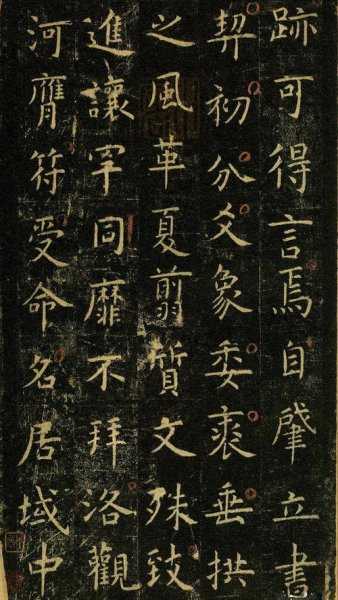 跡可得言焉自肇立書
契初分爻象委裘垂拱
之風革夏翦質文殊致
進讓罕同靡不拜洛觀
河膺符受命名居域中